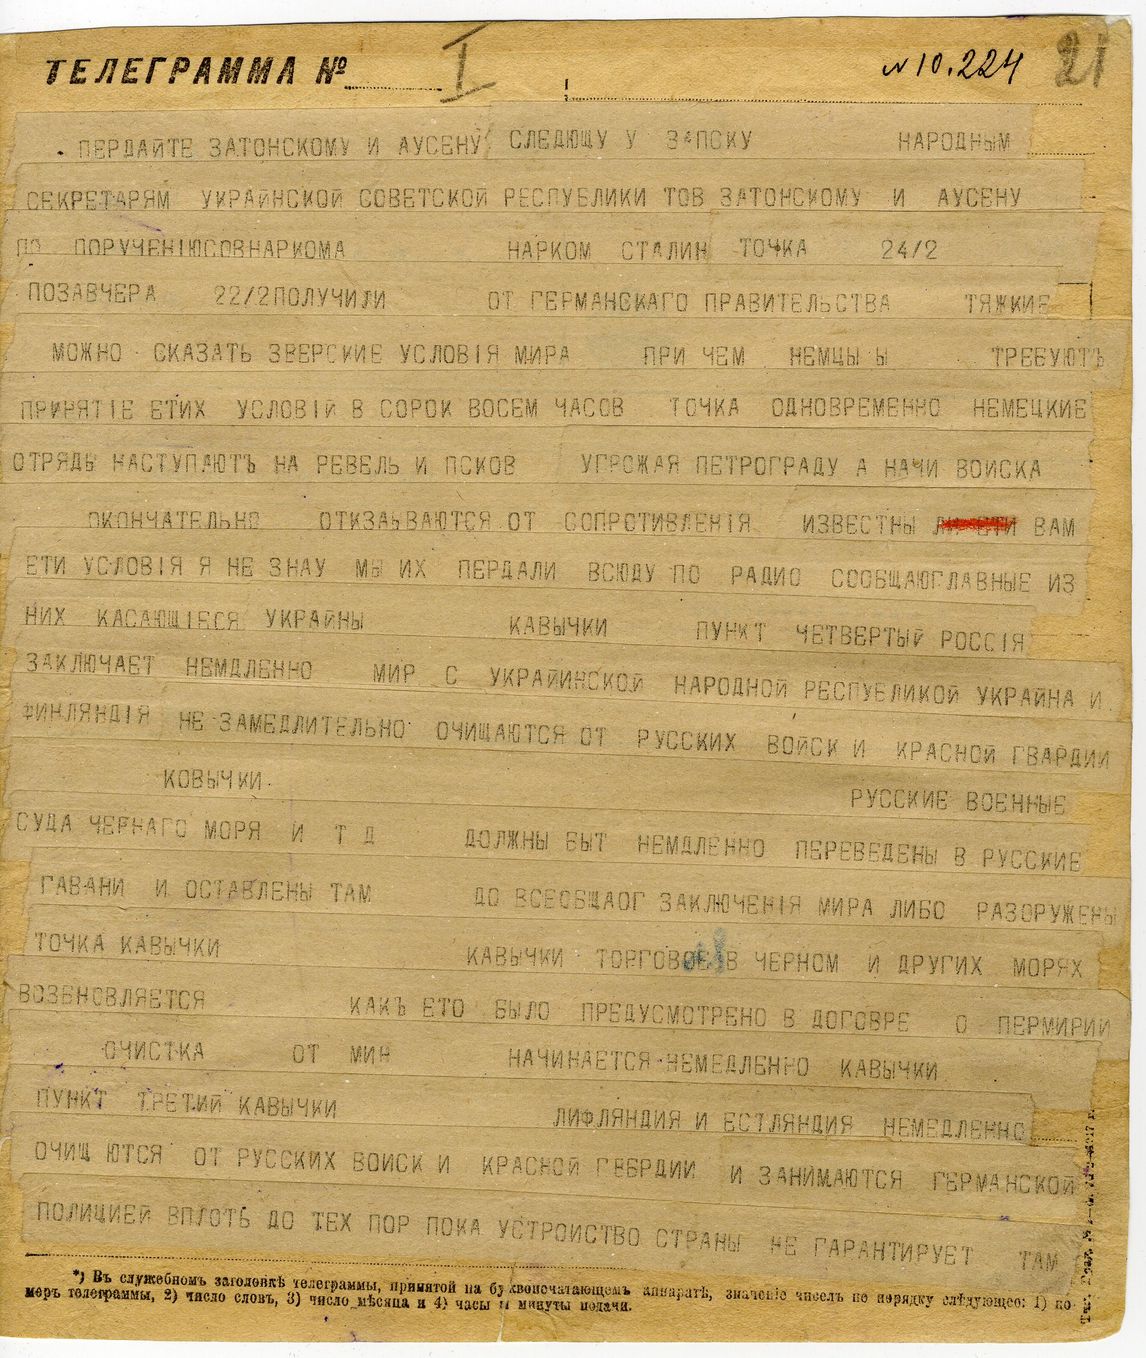 ТЕЛЕГРАММА № I № 10.224 21
ПЕРДАЙТЕ ЗАТОНСКОМУ И АУСЕНУ СЛЕДЮЩУ У ЗАПСКУ НАРОДНЫМ
СЕКРЕТАРЯМ УКРАЙНСКОЙ СОВЕТСКОЙ РЕСПУБЛИКИ ТОВ ЗАТОНСКОМУ И АУСЕНУ
ПО ПОРУЧЕНІЮСОВНАРКОМА НАРКОМ СТАЛИН ТОЧКА 24/2
ПОЗАВЧЕРА 22/2ПОЛУЧИЛИ ОТ ГЕРМАНСКАГО ПРАВИТЕЛЬСТВА ТЯЖКИЕ
МОЖНО СКАЗАТЬ ЗВЕРСКИЕ УСЛОВІЯ МИРА ПРИ ЧЕМ НЕМЦЫ Ы ТРЕБУЮТЪ
ПРИНЯТІЕ ЕТИХ УСЛОВІЙ В СОРОК ВОСЕМ ЧАСОВ ТОЧКА ОДНОВРЕМЕННО НЕМЕЦКИЕ
ОТРЯДЫ НАСТУПАЮТЪ НА РЕВЕЛЬ И ПСКОВ УГРОЖАЯ ПЕТРОГРАДУ А НАЧИ ВОЙСКА
ОКОНЧАТЕЛЬНО ОТКЗАЫВАЮТСЯ ОТ СОПРОТИВЛЕНІЯ ИЗВЕСТНЫ ЛИ ЕТИ ВАМ
ЕТИ УСЛОВІЯ Я НЕ ЗНАУ МЫ ИХ ПЕРДАЛИ ВСЮДУ ПО РАДИО СООБЩАЮГЛАВНЫЕ ИЗ
НИХ КАСАЮЩІЕСЯ УКРАЙНЫ КАВЫЧКИ ПУНКТ ЧЕТВЕРТЫЙ РОССІЯ
ЗАКЛЮЧАЕТ НЕМДЛЕННО МИР С УКРАЙИНСКОЙ НАРОДНОЙ РЕСПУБЛИКОЙ УКРАЙНА И
ФИНЛЯНДІЯ НЕ ЗАМЕДЛИТЕЛЬНО ОЧИЩАЮТСЯ ОТ РУССКИХ ВОЙСК И КРАСНОЙ ГВАРДИИ
КОВЫЧКИ РУССКИЕ ВОЕННЫЕ
СУДА ЧЕРНАГО МОРЯ И Т Д ДОЛЖНЫ БЫТ НЕМДЛЕННО ПЕРЕВЕДЕНЫ В РУССКИЕ
ГАВАНИ И ОСТАВЛЕНЫ ТАМ ДО ВСЕОБЩАОГ ЗАКЛЮЧЕНІЯ МИРА ЛИБО РАЗОРУЖЕНЫ
ТОЧКА КАВЫЧКИ КАВЫЧКИ В ЧЕРНОМ И ДРУГИХ МОРЯХ
ВОЗБНОВЛЯЕТСЯ КАКЪ ЕТО БЫЛО ПРЕДУСМОТРЕНО В ДОГОВРЕ О ПЕРМИРИИ
ОЧИСТКА ОТ МИН НАЧИНАЕТСЯ НЕМЕДЛЕННО КАВЫЧКИ
ПУНКТ ТРЕТИЙ КАВЫЧКИ ЛИФЛЯНДИЯ И ЕСТЛЯНДИЯ НЕМЕДЛЕННО
ОЧИЩ ЮТСЯ ОТ РУССКИХ ВОИСК И КРАСНОЙ ГВБРДИИ И ЗАНИМАЮТСЯ ГЕРМАНСКОЙ
ПОЛИЦИЕЙ ВПЛОТЬ ДО ТЕХ ПОР ПОКА УСТРОИСТВО СТРАНЫ НЕ ГАРАНТИРУЕТ ТАМ
*) Въ служебномъ заголовкѣ телеграммы, принятой на буквопечатающемъ аппаратѣ, значеніе чиселъ по порядку слѣдующее: 1) но-
меръ телеграммы, 2) число словъ, 3) число мѣсяца и 4) часы и минуты подачи.